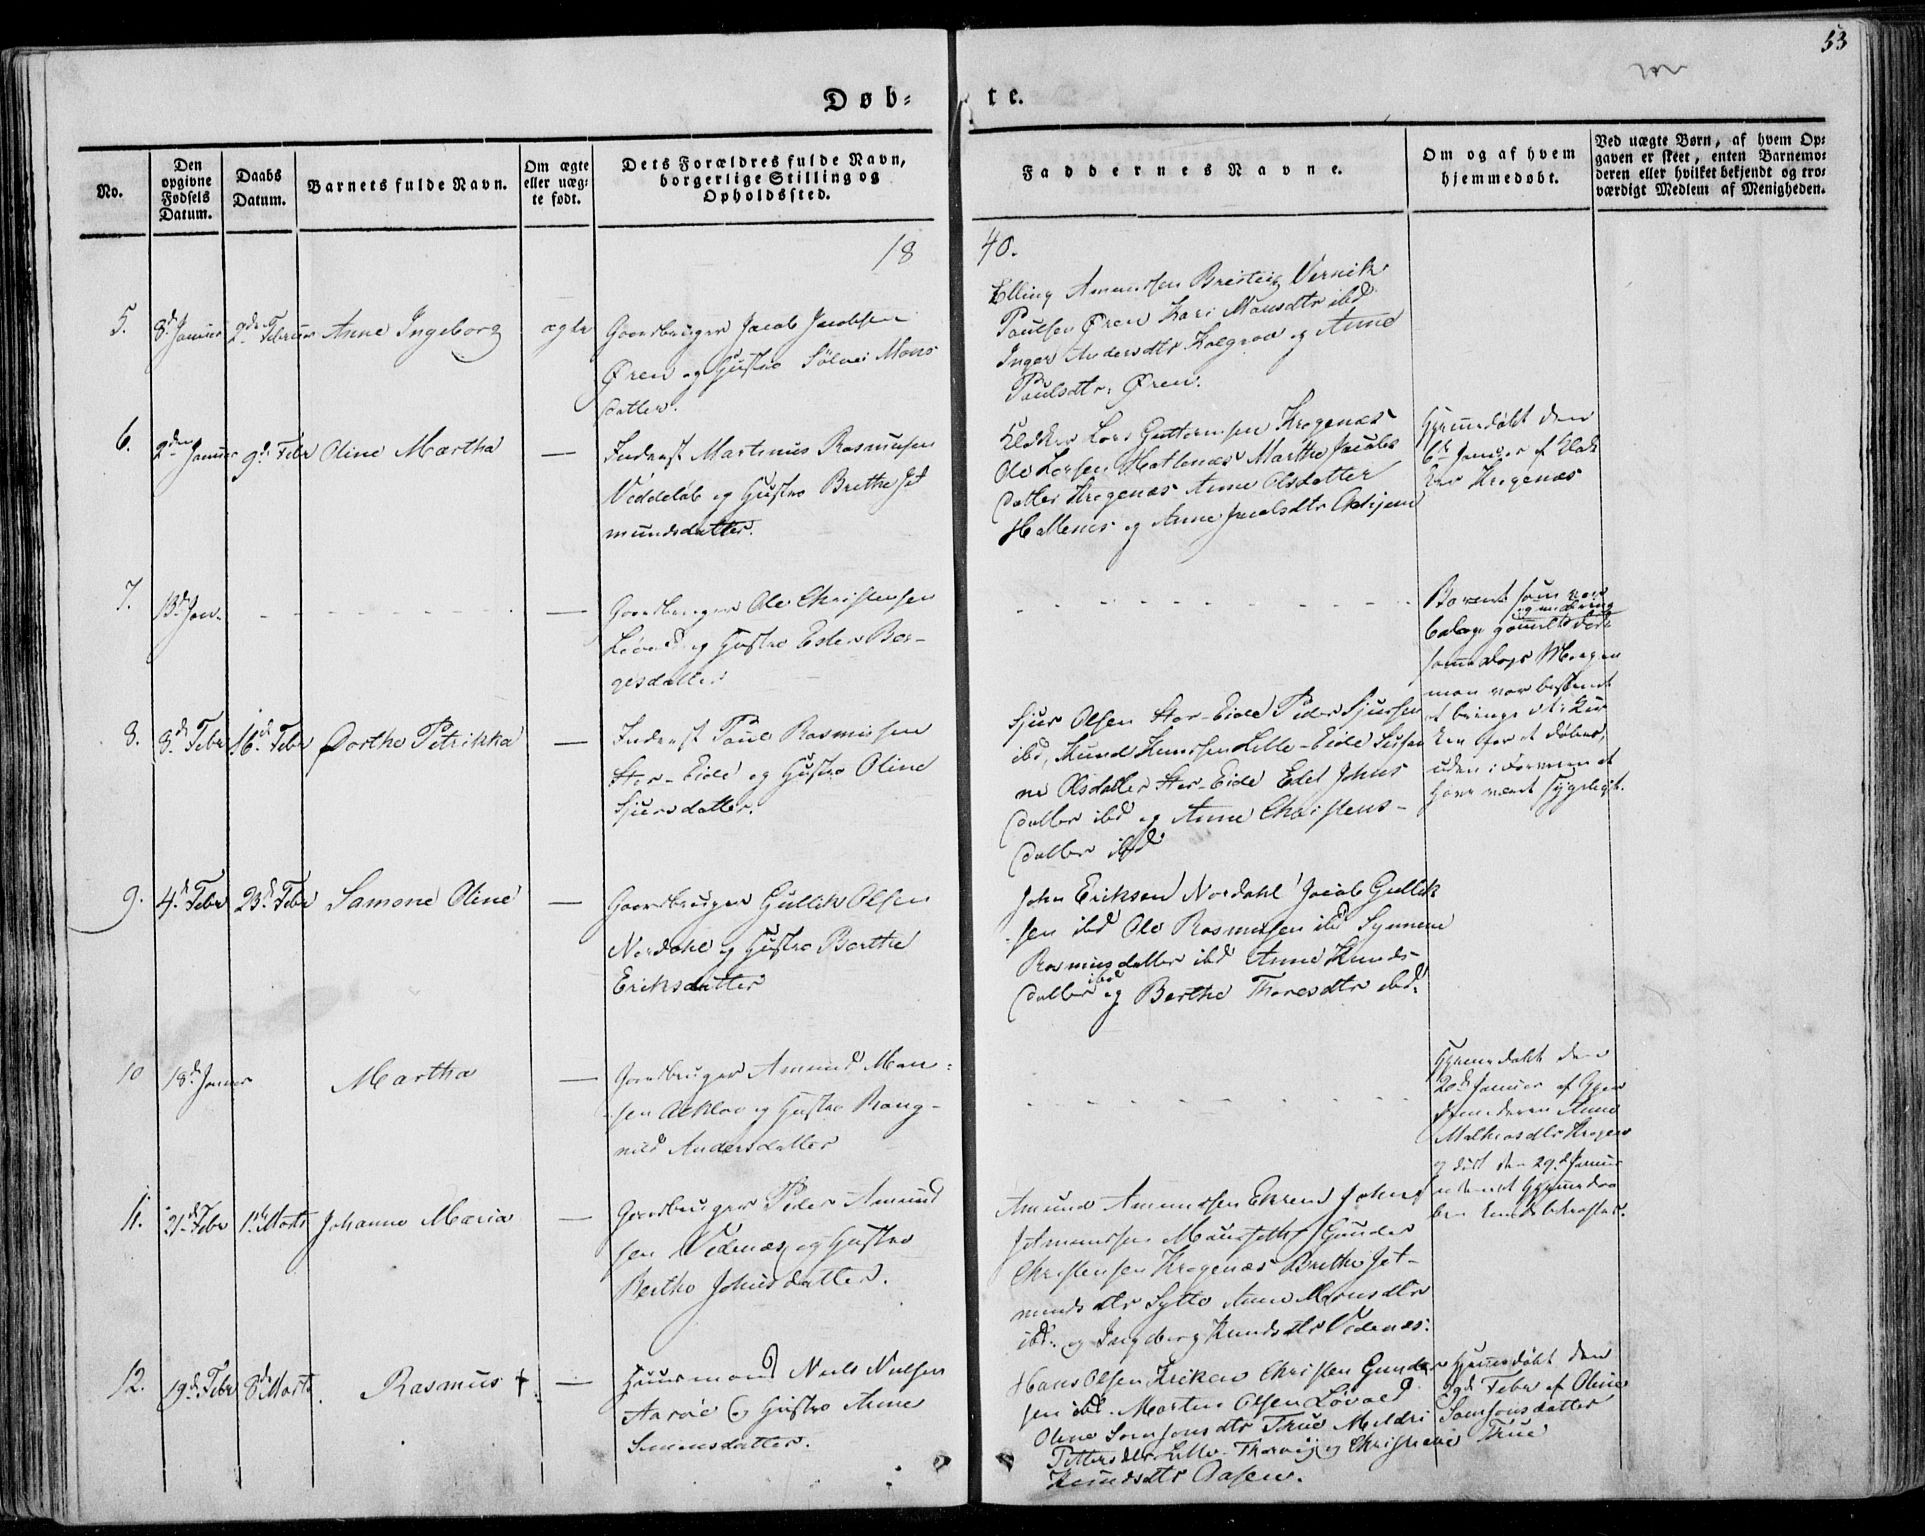 53
Døb-
te.
No.
Den
opgivne
Fødsels
Datum.
Daabs
Datum.
Barnets fulde Navn.
Om ægte
eller uæg-
te født.
Dets Forældres fulde Navn,
borgerlige Stilling og
Opholdssted.
Faddernes Navne.
Om og af hvem
hjemmedøbt.
Ved uægte Børn, af hvem Op-
gaven er skeet, enten Barnemo-
deren eller hvilket bekjendt og tro-
værdigt Medlem af Menigheden.
18
40.
5.
8d Januar
2den Februar
Anne Ingeborg
ægte
Gaardbruger Jacob Jacobsen
Øren og Hustro Sølvei Mons
datter.
Elling Amundsen Bresteig
Paulsen Øren Kari Monsdtr ibd
Inger Andersdtr og Anne
Paulsdtr. Øren.
6.
2den Januar
9d Febr
Oline Martha
—
Inderst Martinus Rasmusen
og Hustro Brethe Jet
mundsdatter.
Klokker Lars Guttormsen Kragenæs
Ole Larsen Hatlenæs Marthe Jacobs
datter Kragenæs Anne Olsdatter
Hatlenæs og Anne Jacobsdtr
Hjemmedøbt den
6te Januar af Klok
ker Kragenæs
7.
13d Jan.
—
Gaardbruger Ole Christensen
Løvold og Hustro Ester Bør-
gesdatter
Barnet som var
gammelt døde
samme Dags Morgen
man var bestemt
at bringe det i Kir
ken for at døbes,
uden i Forveien at
have været sygeligt.
8.
8d Febr
16d Febr
Dorthe Petrikka
—
Inderst Paul Rasmusen
Stor-Eide og Hustro Oline
Sjursdatter.
Sjur Olsen Stor-Eide Peder Sjursen
ibd, Knud Knudsen Lille-Eide Susan
ne Olsdatter Stor-Eide Edel Johns
datter ibd og Anne Christens-
datter ibd
9.
4d Febr
23d Febr
Samone Oline
—
Gaardbruger Gullik Olsen
Nordahl og Hustro Berthe
Eriksdatter
John Eriksen Nordahl Jacob Gullik
sen ibd Ole Rasmusen ibd Synneve
Rasmusdatter ibd Anne Knuds-
datter ibd og Berthe Thoresdtr ibd.
10
18d Januar
Martha
—
Gaardbruger Amund Mon-
sen og Hustro Rang-
nild Andersdatter
Hjemmedøbt den
20d Januar af Gjor
demoderen Anne
Mathiasdtr Kragenæs
og død den 29d Januar
uden at Hjemmedaa
ben bekræftet.
11.
21d Febr
1ste Marts
Johanne Maria
—
Gaardbruger Peder Amund
sen Vedenæs og Hustro
Berthe Johnsdatter.
Amund Amundsen John
Jetmundsen Maurseth Gunder
Christensen Kragenæs Brethe Jet-
mundsdtr Sylte Anne Monsdtr
ibd. og Ingeborg Knudsdtr Vedenæs.
12.
19d Febr
8d Marts
Rasmus †
—
Huusmand Niels Nielsen
Aaröe og Hustro Anne
Simensdatter.
Hans Olsen Kirken Christen Gunder
sen ibd. Martin Olsen Løvold
Oline Samsonsdtr True Mildri
Pettersdtr Lille- og Christiane
Knudsdtr Aasen.
Hjemmedøbt den
Febr af Oline
Samsonsdatter
True